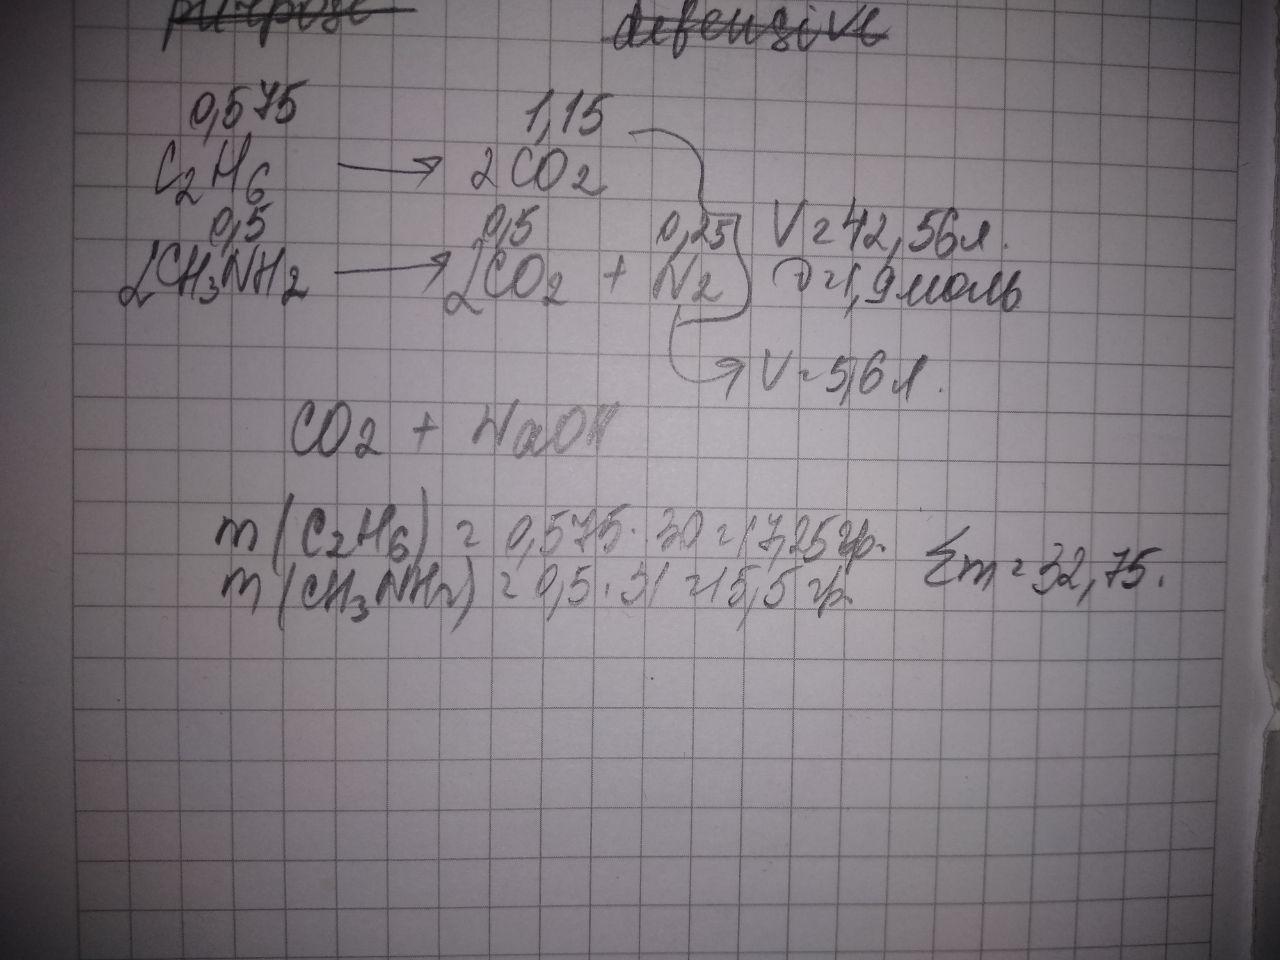 purpose defensive
0,575 1,15
C2H6 → 2CO2
0,5 0,5 0,25 V = 42,56 л.
2CH3NH2 → 2CO2 + N2 ν = 1,9 моль
V = 5,6 л.
CO2 + NaOH
m(C2H6) = 0,575 · 30 = 17,25 гр. Σm = 32,75.
m(CH3NH2) = 0,5 · 31 = 15,5 гр.